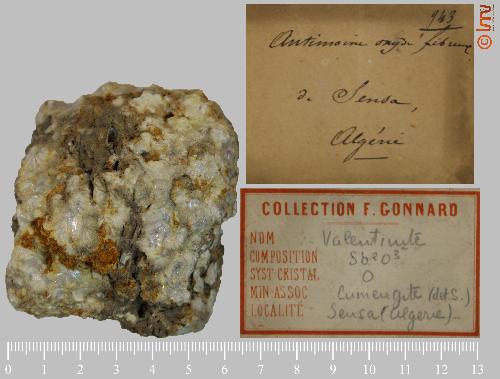 943
Antimoine oxydé fibreux
de Sensa,
Algérie
COLLECTION F. GONNARD
NOM Valentinite
COMPOSITION Sb2O3
SYST-CRISTAL O
MIN-ASSOC Cumengite (det S.)
LOCALITÉ Sensa (Algérie)
0 1 2 3 4 5 6 7 8 9 10 11 12 13